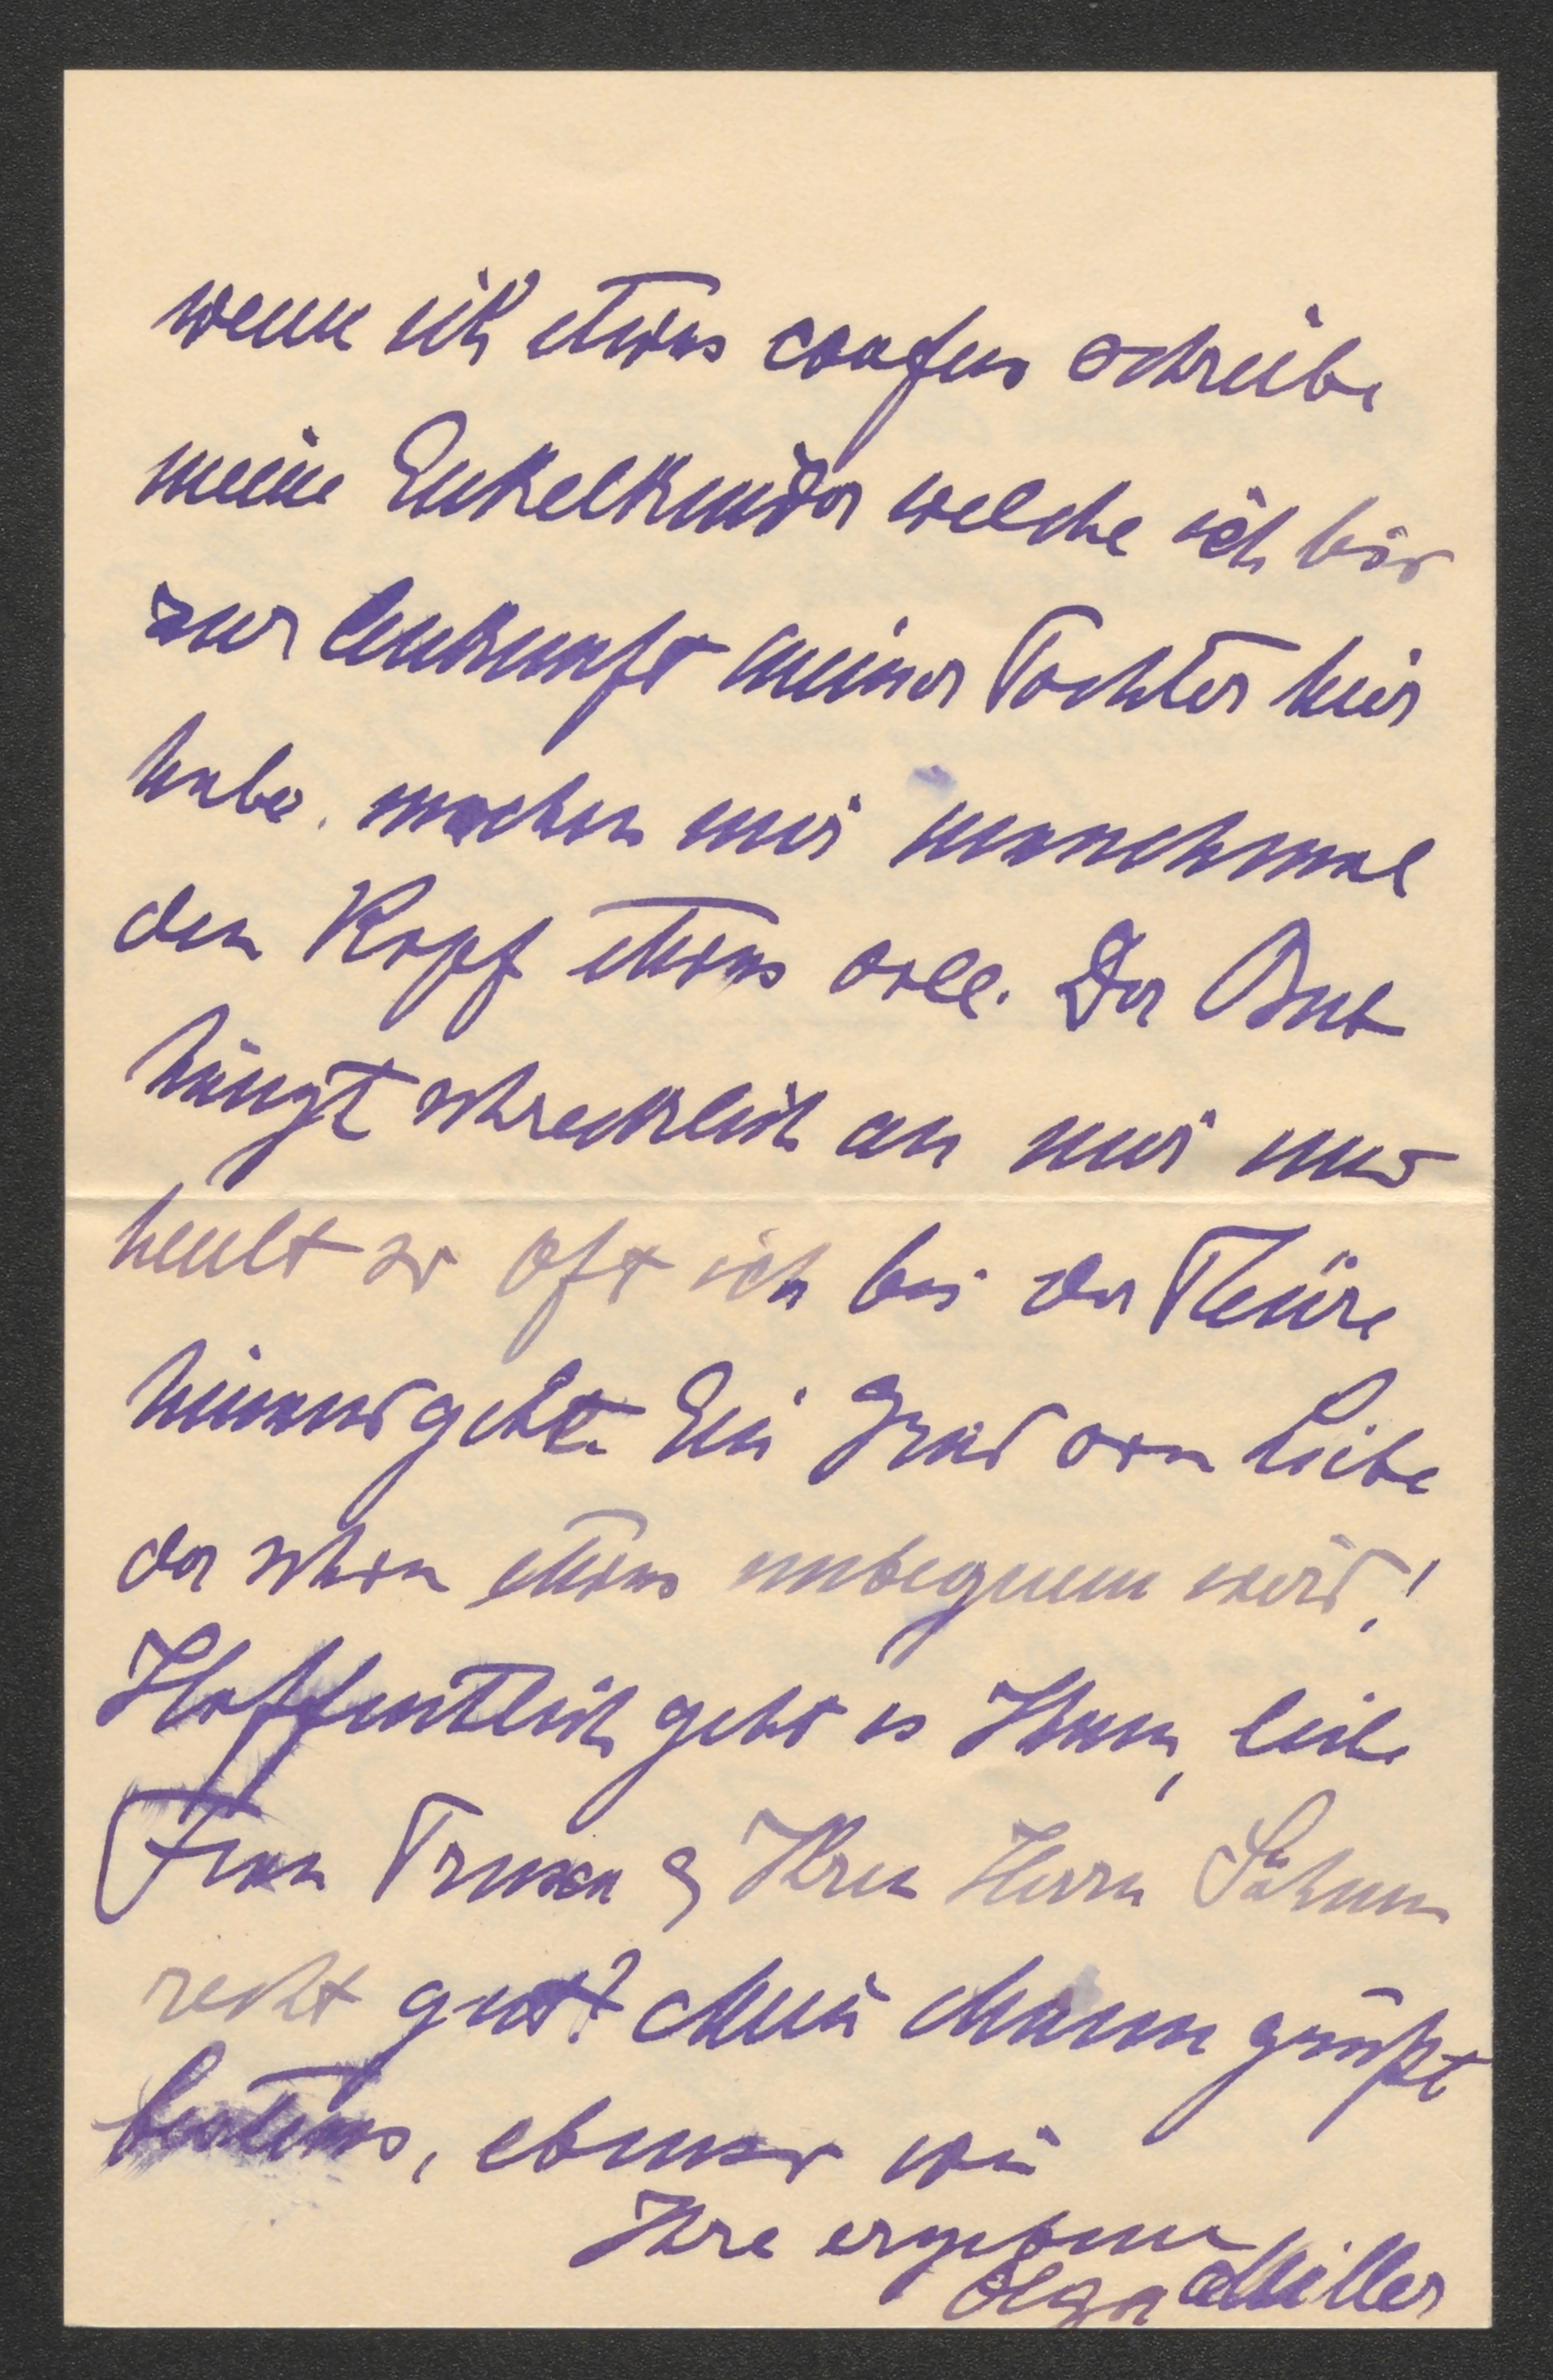 wenn ich etwas confus schreibe
meine Enkelkinder welche ich bis
zur Ankunft meiner Tochter hier
habe. machen mir manchmal
den Kopf etwas voll. Der
hängt schrecklich an mir und
heult so oft ich bei der Thüre
hinausgehe. Ein Grad von Liebe
der schon etwas unbequem wird!
Hoffentlich geht es Ihnen, liebe
Frau & Ihren Herrn Söhnen
recht gut? Mein Mann grüßt
bestens, ebenso wie
Ihre ergebene
Olga Miller